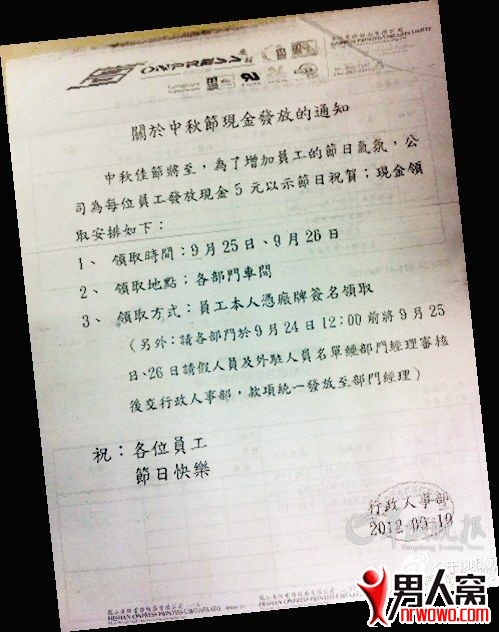 關於中秋節現金發放的通知
中秋佳節將至，為了增加員工的節日氣氛，公
司為每位員工發放現金5元以示節日祝賀；現金領
取安排如下：
1、領取時間：9月25日、9月26日
2、領取地點：各部門車間
3、領取方式：員工本人憑廠牌簽名領取
（另外：請各部門於9月24日12:00前將9月25
日、26日請假人員及外駐人員名單經部門經理審核
後交行政人事部，款項統一發放至部門經理）
祝：各位員工
節日快樂
行政人事部
2012-09-19
羊城晚报
Yangcheng Evening News
HESHAN ONPRESS PRINTED CIRCUITS LTD.
男人窝
nrwowo.com